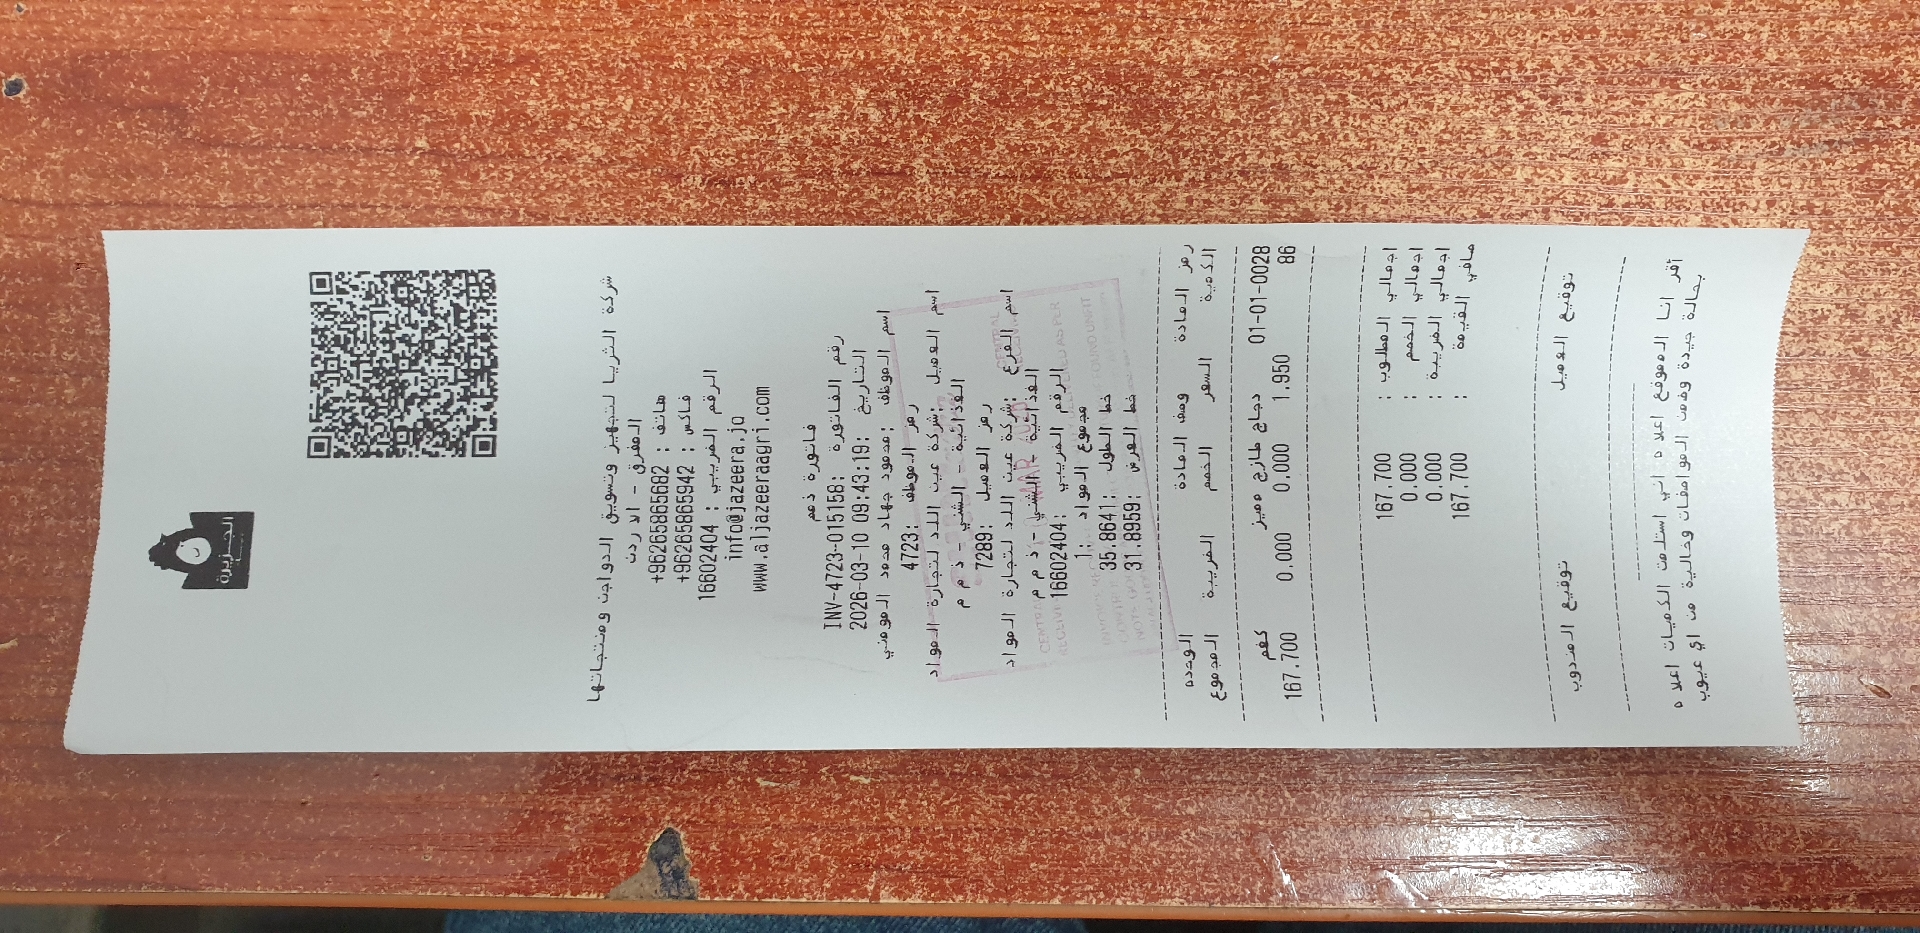 الجزيرة
شركة الثريا لتجهيز وتسويق الدواجن ومنتجاتها
المفرق - الاردن
هاتف : +96265865682
فاكس : +96265865942
الرقم الضريبي : 16602404
info@jazeera.jo
www.aljazeeraagri.com
فاتورة ذمم
رقم الفاتورة :INV-4723-015158
التاريخ :2026-03-10 09:43:19
اسم الموظف :محمود جهاد محمد المومني
رمز الموظف :4723
اسم العميل :شركة غيث اللد لتجارة المواد
الغذائية - الشني - ذ م م
رمز العميل :7289
اسم الفرع :شركة غيث اللد لتجارة المواد
الغذائية - الشني - ذ م م
الرقم الضريبي :16602404
مجموع المواد :1
خط الطول :35.8641
خط العرض :31.8959
CENTRAL
MAR
رمز المادة وصف المادة الوحده
الكمية السعر الخصم الضريبة المجموع
01-01-0028 دجاج طازج مميز كغم
86 1.950 0.000 0.000 167.700
اجمالي المطلوب : 167.700
اجمالي الخصم : 0.000
اجمالي الضريبة : 0.000
صافي القيمة : 167.700
توقيع العميل توقيع المندوب
أقر انا الموقع اعلاه اني استلمت الكميات اعلاه
بحالة جيدة وضمن المواصفات وخالية من اي عيوب